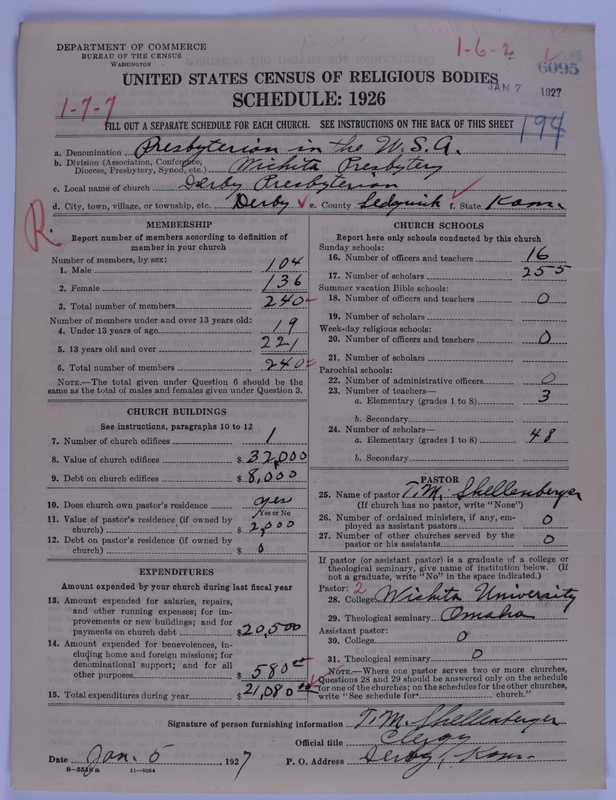 DEPARTMENT OF COMMERCE
BUREAU OF THE CENSUS
WASHINGTON
1-6-2
6095
UNITED STATES CENSUS OF RELIGIOUS BODIES
JAN 7 1927
SCHEDULE: 1926
1-7-7
FILL OUT A SEPARATE SCHEDULE FOR EACH CHURCH. SEE INSTRUCTIONS ON THE BACK OF THIS SHEET
194
a. Denomination Presbyterian in the U.S.A.
b. Division (Association, Conference, Diocese, Presbytery, Synod, etc.) Wichita Presbytery
c. Local name of church Derby Presbyterian
d. City, town, village, or township, etc. Derby e. County Sedgwick f. State Kans.
R.
MEMBERSHIP
Report number of members according to definition of
member in your church
Number of members, by sex:
1. Male 104
2. Female 136
3. Total number of members 240
Number of members under and over 13 years old:
4. Under 13 years of age 19
5. 13 years old and over 221
6. Total number of members 240
NOTE.—The total given under Question 6 should be
same as the total of males and females given under Question 3.
CHURCH BUILDINGS
See instructions, paragraphs 10 to 12
7. Number of church edifices 1
8. Value of church edifices $ 32,000
9. Debt on church edifices $ 8,000
10. Does church own pastor's residence yes
Yes or No
11. Value of pastor's residence (if owned by
church) $ 2,000
12. Debt on pastor's residence (if owned by
church) $ 0
EXPENDITURES
Amount expended by your church during last fiscal year
13. Amount expended for salaries, repairs,
and other running expenses; for im-
provements or new buildings; and for
payments on church debt $ 20,500
14. Amount expended for benevolences, in-
cluding home and foreign missions; for
denominational support; and for all
other purposes $ 580 00
15. Total expenditures during year $ 21,080 00
CHURCH SCHOOLS
Report here only schools conducted by this church
Sunday schools:
16. Number of officers and teachers 16
17. Number of scholars 255
Summer vacation Bible schools:
18. Number of officers and teachers 0
19. Number of scholars
Week-day religious schools:
20. Number of officers and teachers 0
21. Number of scholars
Parochial schools:
22. Number of administrative officers 0
23. Number of teachers—
a. Elementary (grades 1 to 8) 3
b. Secondary
24. Number of scholars—
a. Elementary (grades 1 to 8) 48
b. Secondary
PASTOR
25. Name of pastor T.M. Shellenberger
(If church has no pastor, write "None")
26. Number of ordained ministers, if any, em-
ployed as assistant pastors 0
27. Number of other churches served by the
pastor or his assistants 0
If pastor (or assistant pastor) is a graduate of a college or
theological seminary, give name of institution below. (If
not a graduate, write "No" in the space indicated.)
Pastor: 2
28. College Wichita University
29. Theological seminary Omaha
Assistant pastor:
30. College 0
31. Theological seminary 0
NOTE.—Where one pastor serves two or more churches,
Questions 28 and 29 should be answered only on the schedule
for one of the churches; on the schedules for the other churches,
write "See schedule for church."
Signature of person furnishing information T.M. Shellenberger
Official title Clergy
Date Jan. 5, 1927 P. O. Address Derby, Kans.
8-5518 a 11-9054